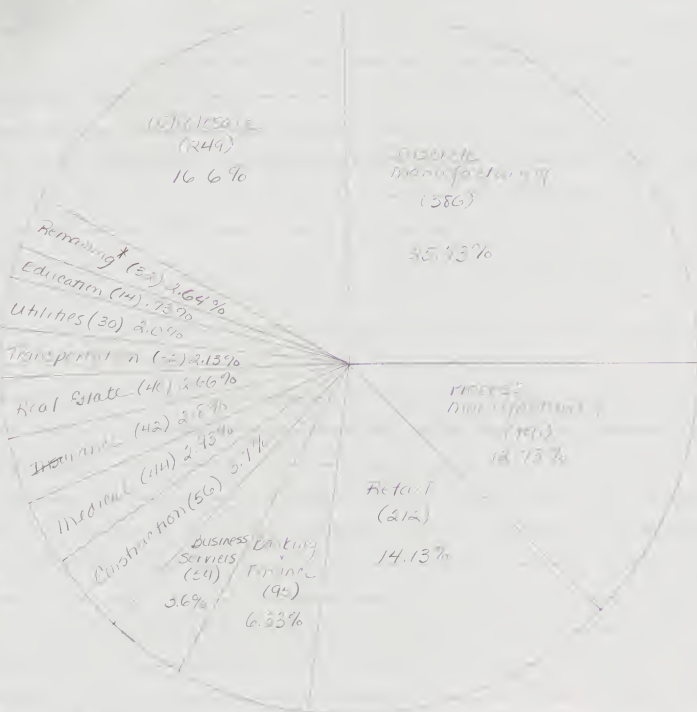 Wholesale
(249)
16.6%
Discrete
Manufacturing
(386)
25.73%
Remaining* (32) 2.64%
Education (14) .93%
Utilities (30) 2.0%
Transportation 2.13%
Real Estate (40) 2.66%
Insurance (42) 2.8%
Medical (44) 2.93%
Construction (56) 3.7%
Business
Services
(54)
3.6%
Banking
Finance
(95)
6.33%
Retail
(212)
14.13%
Process
Manufacturing
12.73%